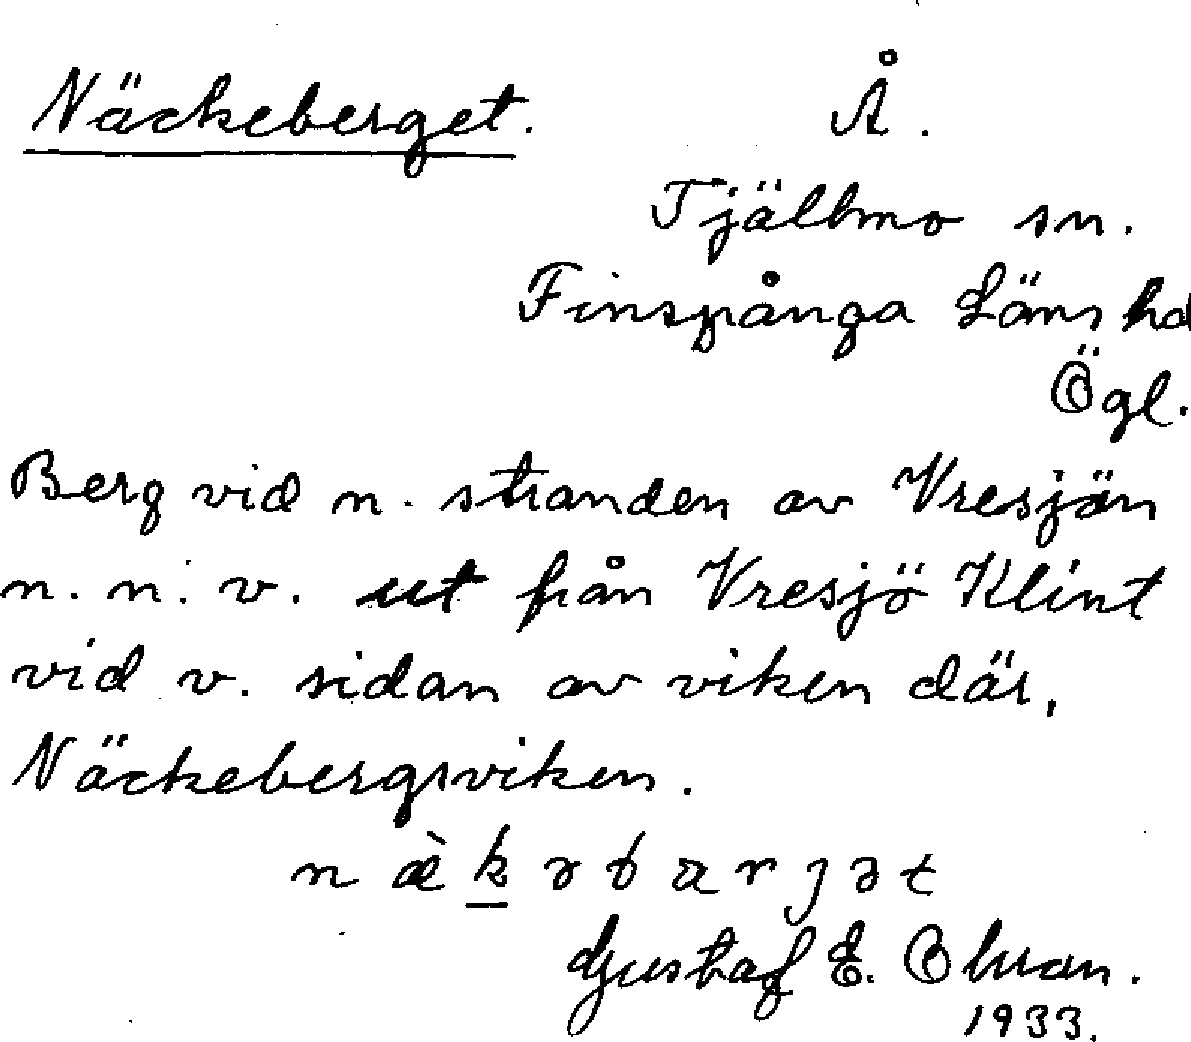 Näckeberget. Å.
Tjällmo sn.
Finspånga Läns hd
Ögl.
Berg vid n. stranden av Vresjön
n. n. v. ut från Vresjö Klint
vid v. sidan av viken där,
Näckebergsviken.
Gustaf E.
1933.